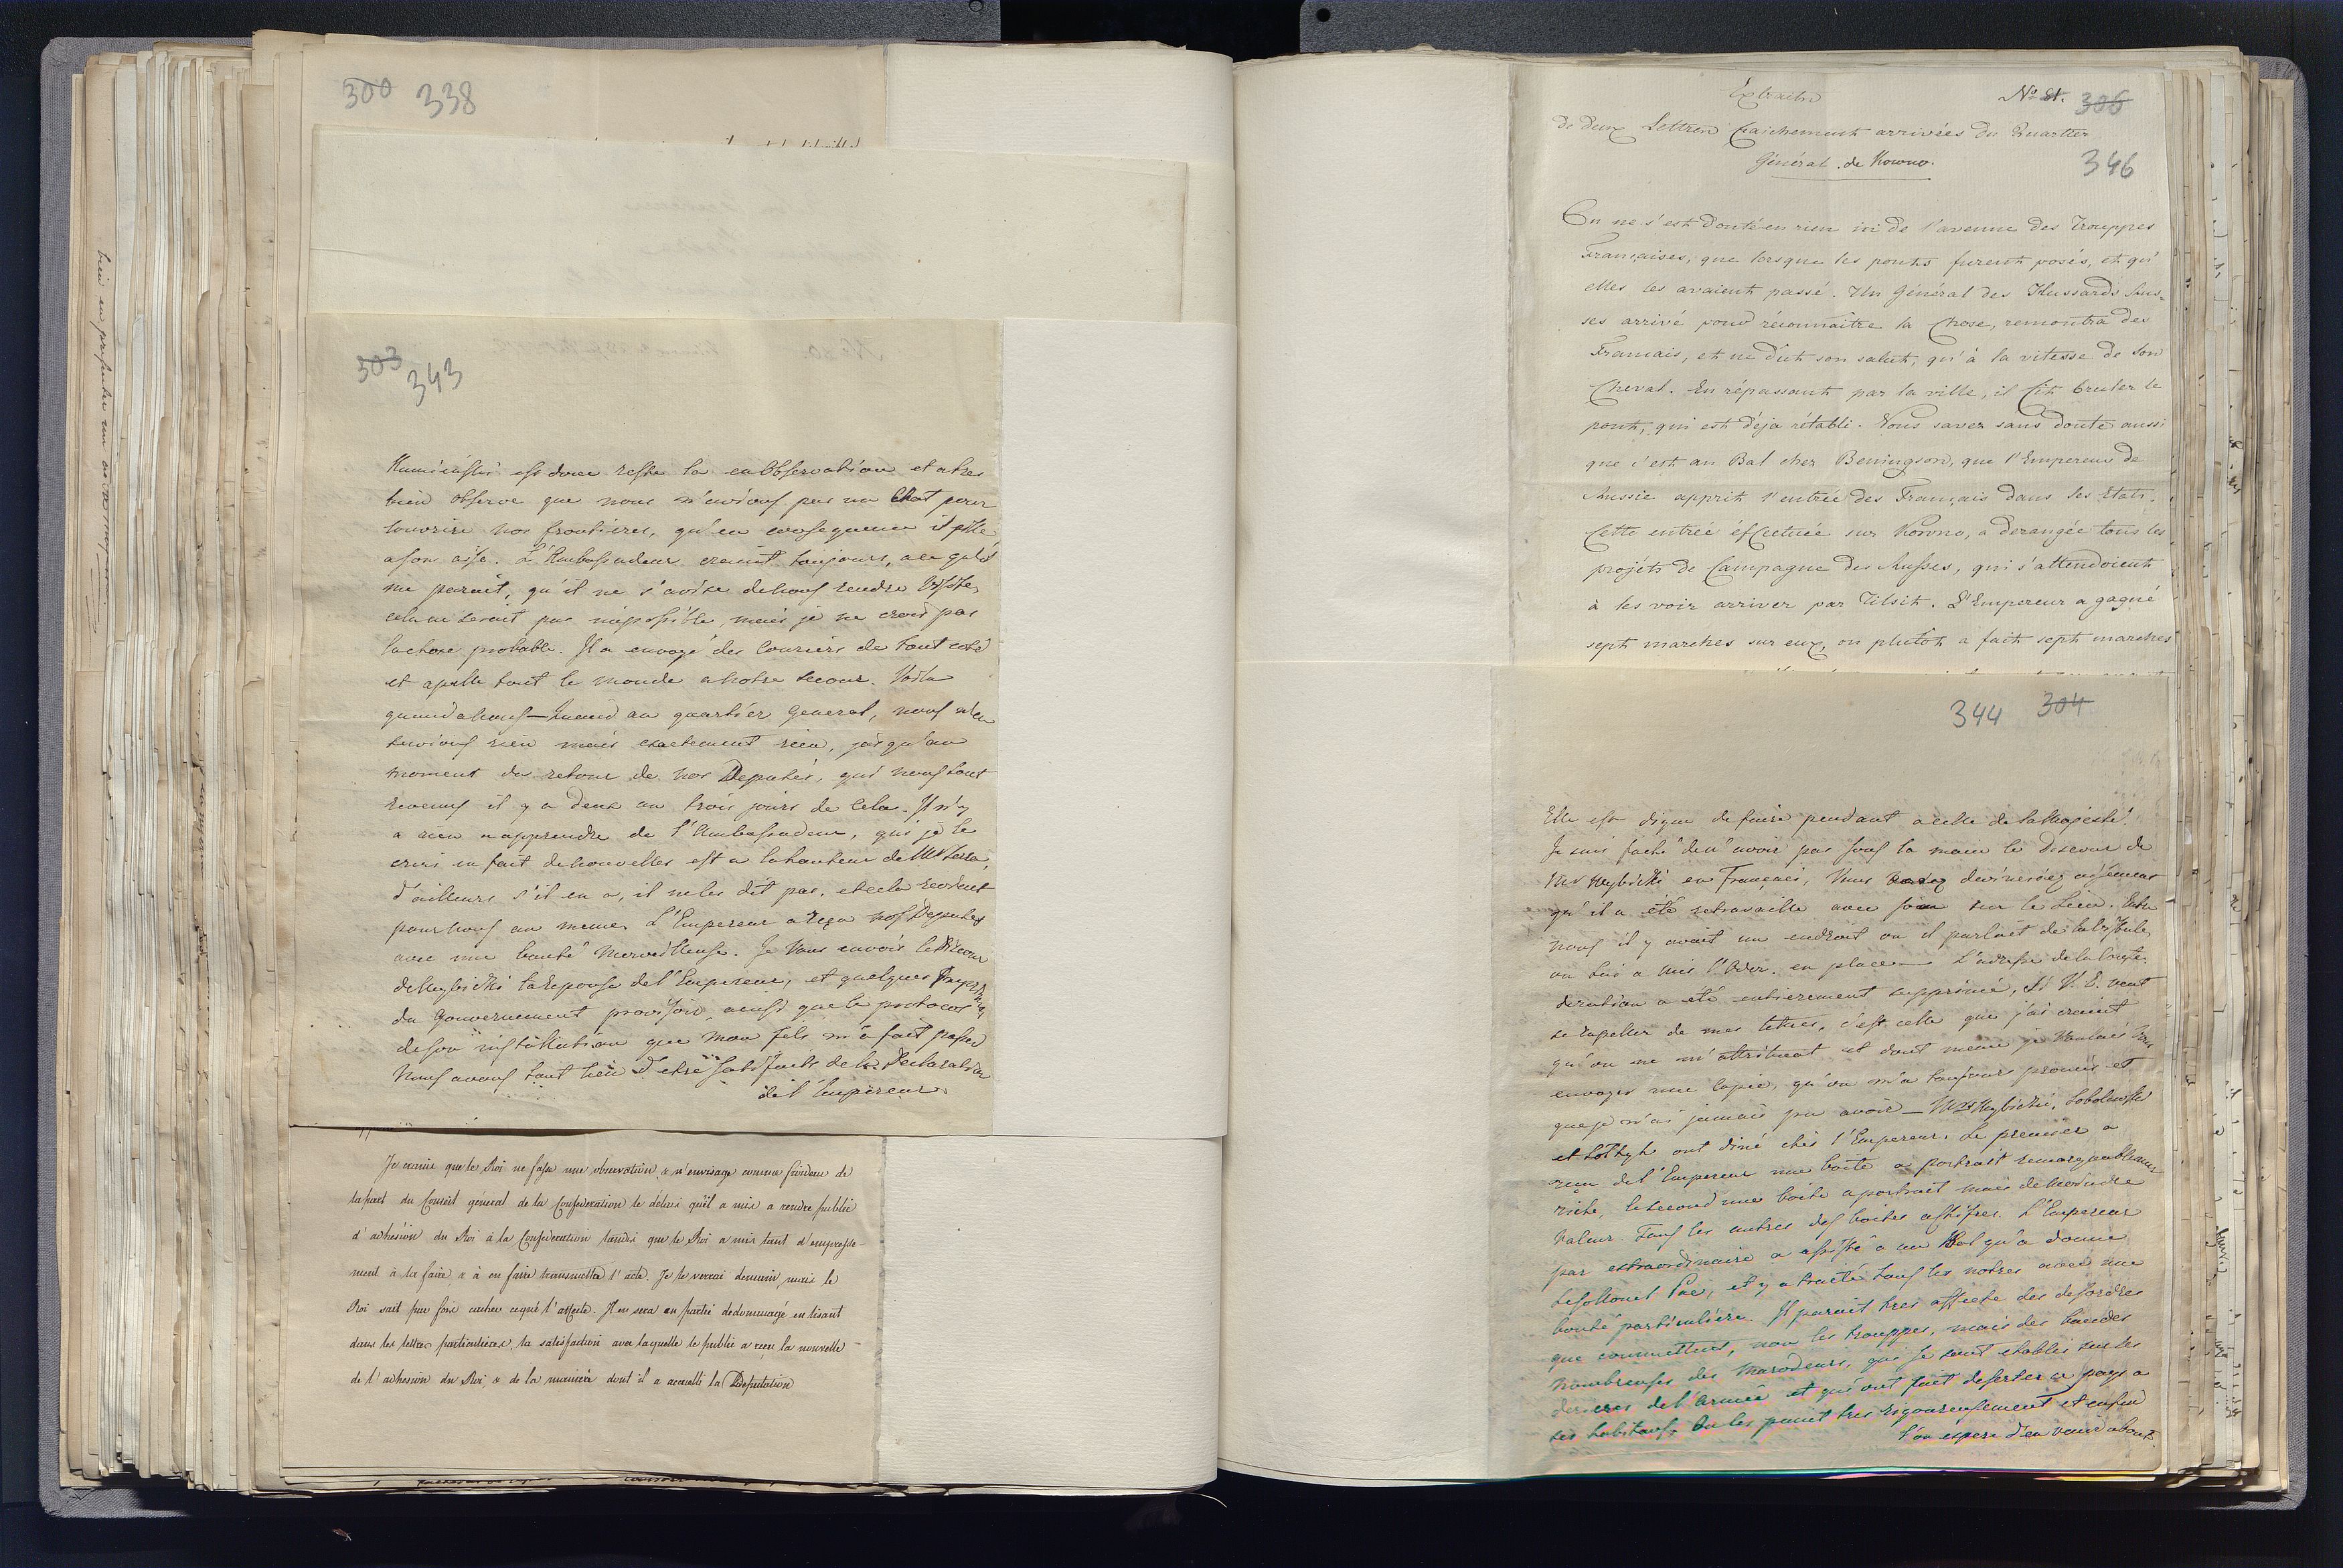 300 338
303
343
Kamieński est donc resté la en Observation et a tres
bien observé que nous n'avions pas un Chat pour
couvrire nos frontieres, qu'en consequence il pille
a son aise. L'Ambassadeur craint toujours, a ce qu'il
me parait, qu'il ne s'avise de nous rendre visite,
cela ne serait pas impossible, mais je ne crois pas
la chose probable. Il a envoyé des Couriers de tout coté
et apelle tout le monde a notre secour. Voila
quand a nous — Quand au quartier General, nous n'en
savions rien mais exactement rien, jusqu'au
moment du retour de nos Deputés, qui nous sont
revenus il y a deux ou trois jours de cela. Il n'y
a rien a apprendre de l'Ambassadeur, qui je le
crois en fait de nouvelles est a la hauteur de
d'ailleurs s'il en a, il ne les dit pas, et cela revient
pour nous au meme. L'Empereur a reçu nos Deputés
avec une bonté merveilleuse. Je Vous envois le Discour
de Wybicki la reponse de l'Empereur, et quelques
du Gouvernement provisoir ainsi que le protocol
de son installation que mon fils m'a fait passer
Nous avons tout lieu d'etre satisfaits de la Declaration
de l'Empereur.
Je crains que le Roi ne fasse une observation & n'envisage comme froideur de
la part du Conseil général de la Confédération le délais qu'il a mis a rendre public
l'adhésion du Roi à la Confédération tandis que le Roi a mis tant d'empresse-
ment à la faire & à en faire transmettre l'acte. Je le verrai demain, mais le
Roi sait par fois cacher ce qui l'affecte. Il en sera en partie dedommagé en lisant
dans les lettres particulieres, la satisfaction avec laquelle le public a reçu la nouvelle
de l'adhesion du Roi, & de la manière dont il a accueilli la Députation
Extraits
No 81. 306
de deux Lettres fraichement arrivées du Quartier
Général de Kowno.
346
On ne s'est douté en rien ici de l'avenue des Trouppes
Françaises, que lorsque les ponts furent posés, et qu'
elles les avaient passé. Un Général des Hussards Rus-
ses arrivé pour réconnaitre la Chose, remontra des
Français, et ne dut son salut, qu'à la vitesse de son
Cheval. En répassant par la ville, il fit bruler le
pont, qui est déja rétabli. Vous savez sans doute aussi
que c'est au Bal chez Beningson, que l'Empereur de
Russie apprit l'entrée des Français dans ses Etats.
Cette entrée éffectuée sur Kowno, a derangée tous les
projèts de Campagne des Russes, qui s'attendoient
à les voir arriver par Tilsit. L'Empereur a gagné
sept marches sur eux, ou plutôt a fait sept marches
344 304
Elle est digne de faire pendant a celle de Sa Majesté.
Je suis faché de n'avoir pas sous la main le Discour de
Mr Wybicki en Français, Vous devineriez aisement
qu'il a été retravaillé avec soin sur le Lieu. Entre
nous il y avait un endroit ou il parlait de la Vistule,
on lui a mis l'Oder en place — L'adresse de la Confé-
deration a été entierement supprimé, Si V. E. veut
se rapeller de mes lettres, c'est celle que j'ai craint
qu'on ne m'attribuat et dont meme je Voulais Vous
envoyer une Copie, qu'on m'a toujours promis et
que je n'ai jamais pu avoir — Wybicki, Sobolewski
et ont diné chés l'Empereur. Le premier a
reçu de l'Empereur une boite a portrait remarquablement
riche, le second une boite a portrait mais de moindre
Valeur Tous les autres des boites a chifres. L'Empereur
par extraordinaire a assisté a un Bal qu'a donné
le Pac, et y a traité tous les notres avec une
bonté particulière. Il parait tres affecté des desordres
que commettent, non les trouppes, mais des bandes
nombreuses des Marodeurs, qui se sont etablis sur les
derieres de l'Armée et qui ont fait deserter ce pays a
ses habitans. On les punit tres rigoureusement et enfin
l'on espere d'en venir a bout.